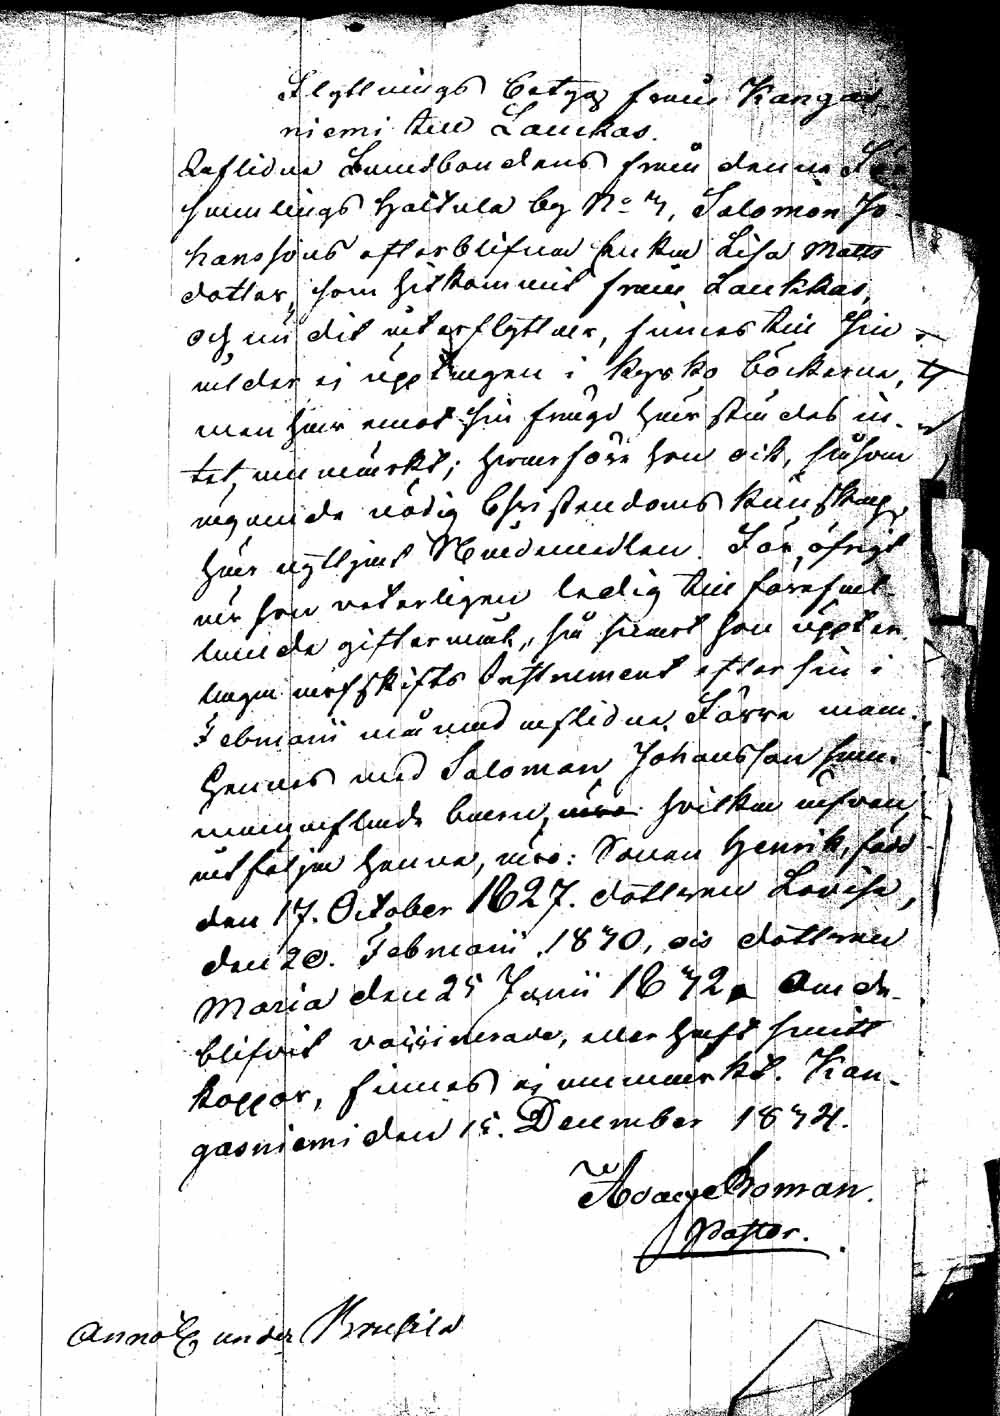 Flyttnings Betyg från Kangas-
niemi till Laukas.
Aflidne Landbondens från denne För
samlings Haltula by No 7, Salomon Jo
hanssons efterblifna Enka Lisa Matts
dotter, som hitkommit från Laukkas,
och nu dit återflyttar, finnes till sin
ålder ej upptagen i kyrko böckerna,
men här emot sin frägd här städes in-
tet anmärkt; hvarföre hon ock, såsom
egande nödig Christendoms kunskap,
här nyttjat Nådemedlen. För öfrigt
är hon veterligen ledig till förefal-
lande giftermål, så snart hon uppter
lagen arfskifts Instrument efter sin i
Februarii månad aflidne Förre man.
Hennes med Salomon Johansson sam-
manaflade barn, hvilka äfven
åtfölja henne, äro: Sonen Henrik, född
den 17. October 1827. dottren Lovisa,
den 20. Februarii 1830, ock dottren
Maria den 25 Junii 1832. Om de
blifvit vaccinerade, eller haft smitt
koppor, finnes ej anmärkt. Kan-
gasniemi den 15. December 1834.
Adam Boman.
Pastor.